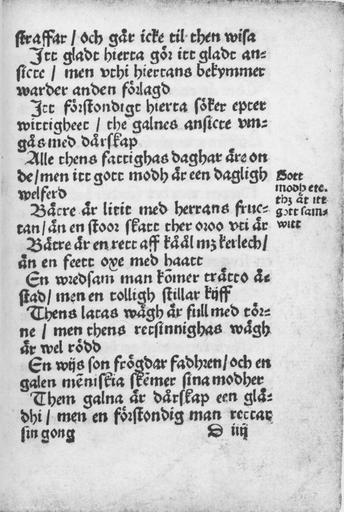 straffar / och går icke til then wisa
Itt gladt hierta gör itt gladt an-
sicte / men vthi hiertans bekymmer
warder anden förlagd
Itt förstondigt hierta söker epter
wittigheet / the galnes ansicte vm-
gås med dårskap
Alle thens fattighas daghar äre on
de/men itt gott modh är een dagligh
welferd
Bätre är litit med herrans fruc-
tan/än en stoor skatt ther oroo vti är
Bätre är en rett aff kåål mz kerlech/
än en feett oxe med haatt
En wredsam man kõmer trätto å-
stad/men en tolligh stillar kijff
Thens latas wägh är full med tör-
ne / men thens retsinnighas wägh
är wel rödd
En wijs son frögdar fadhren/och en
galen mẽniskia skẽmer sina modher
Them galna är dårskap een glä-
dhi / men en förstondig man rettar
sin gong
D iiij
Gott
modh etc.
thz är itt
gott sam-
witt